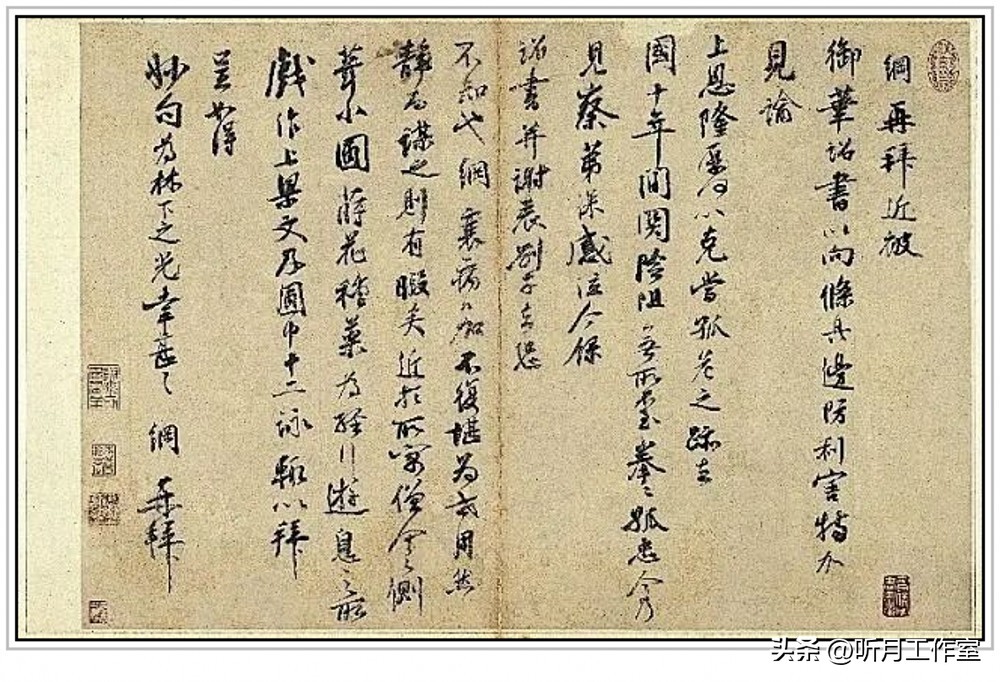 綱再拜近被
御筆詔書以向條具邊防利害特加
見諭
上恩隆厚何以克當孤危之蹤去
國十年間關險阻無所 拳々孤忠今乃
見察第深感泣今録
詔書并謝表劄子去恐
不知也綱衰病日加不復堪為世用然
靜為謀之則有暇矣近於所寓僧舍之側
葺小圃蒔花種藥為經行遊息之所
戲作上梁文及圃中十二詠輒以拜
呈如得
妙句為林下之光幸甚々 綱 再拜
头条 @听月工作室